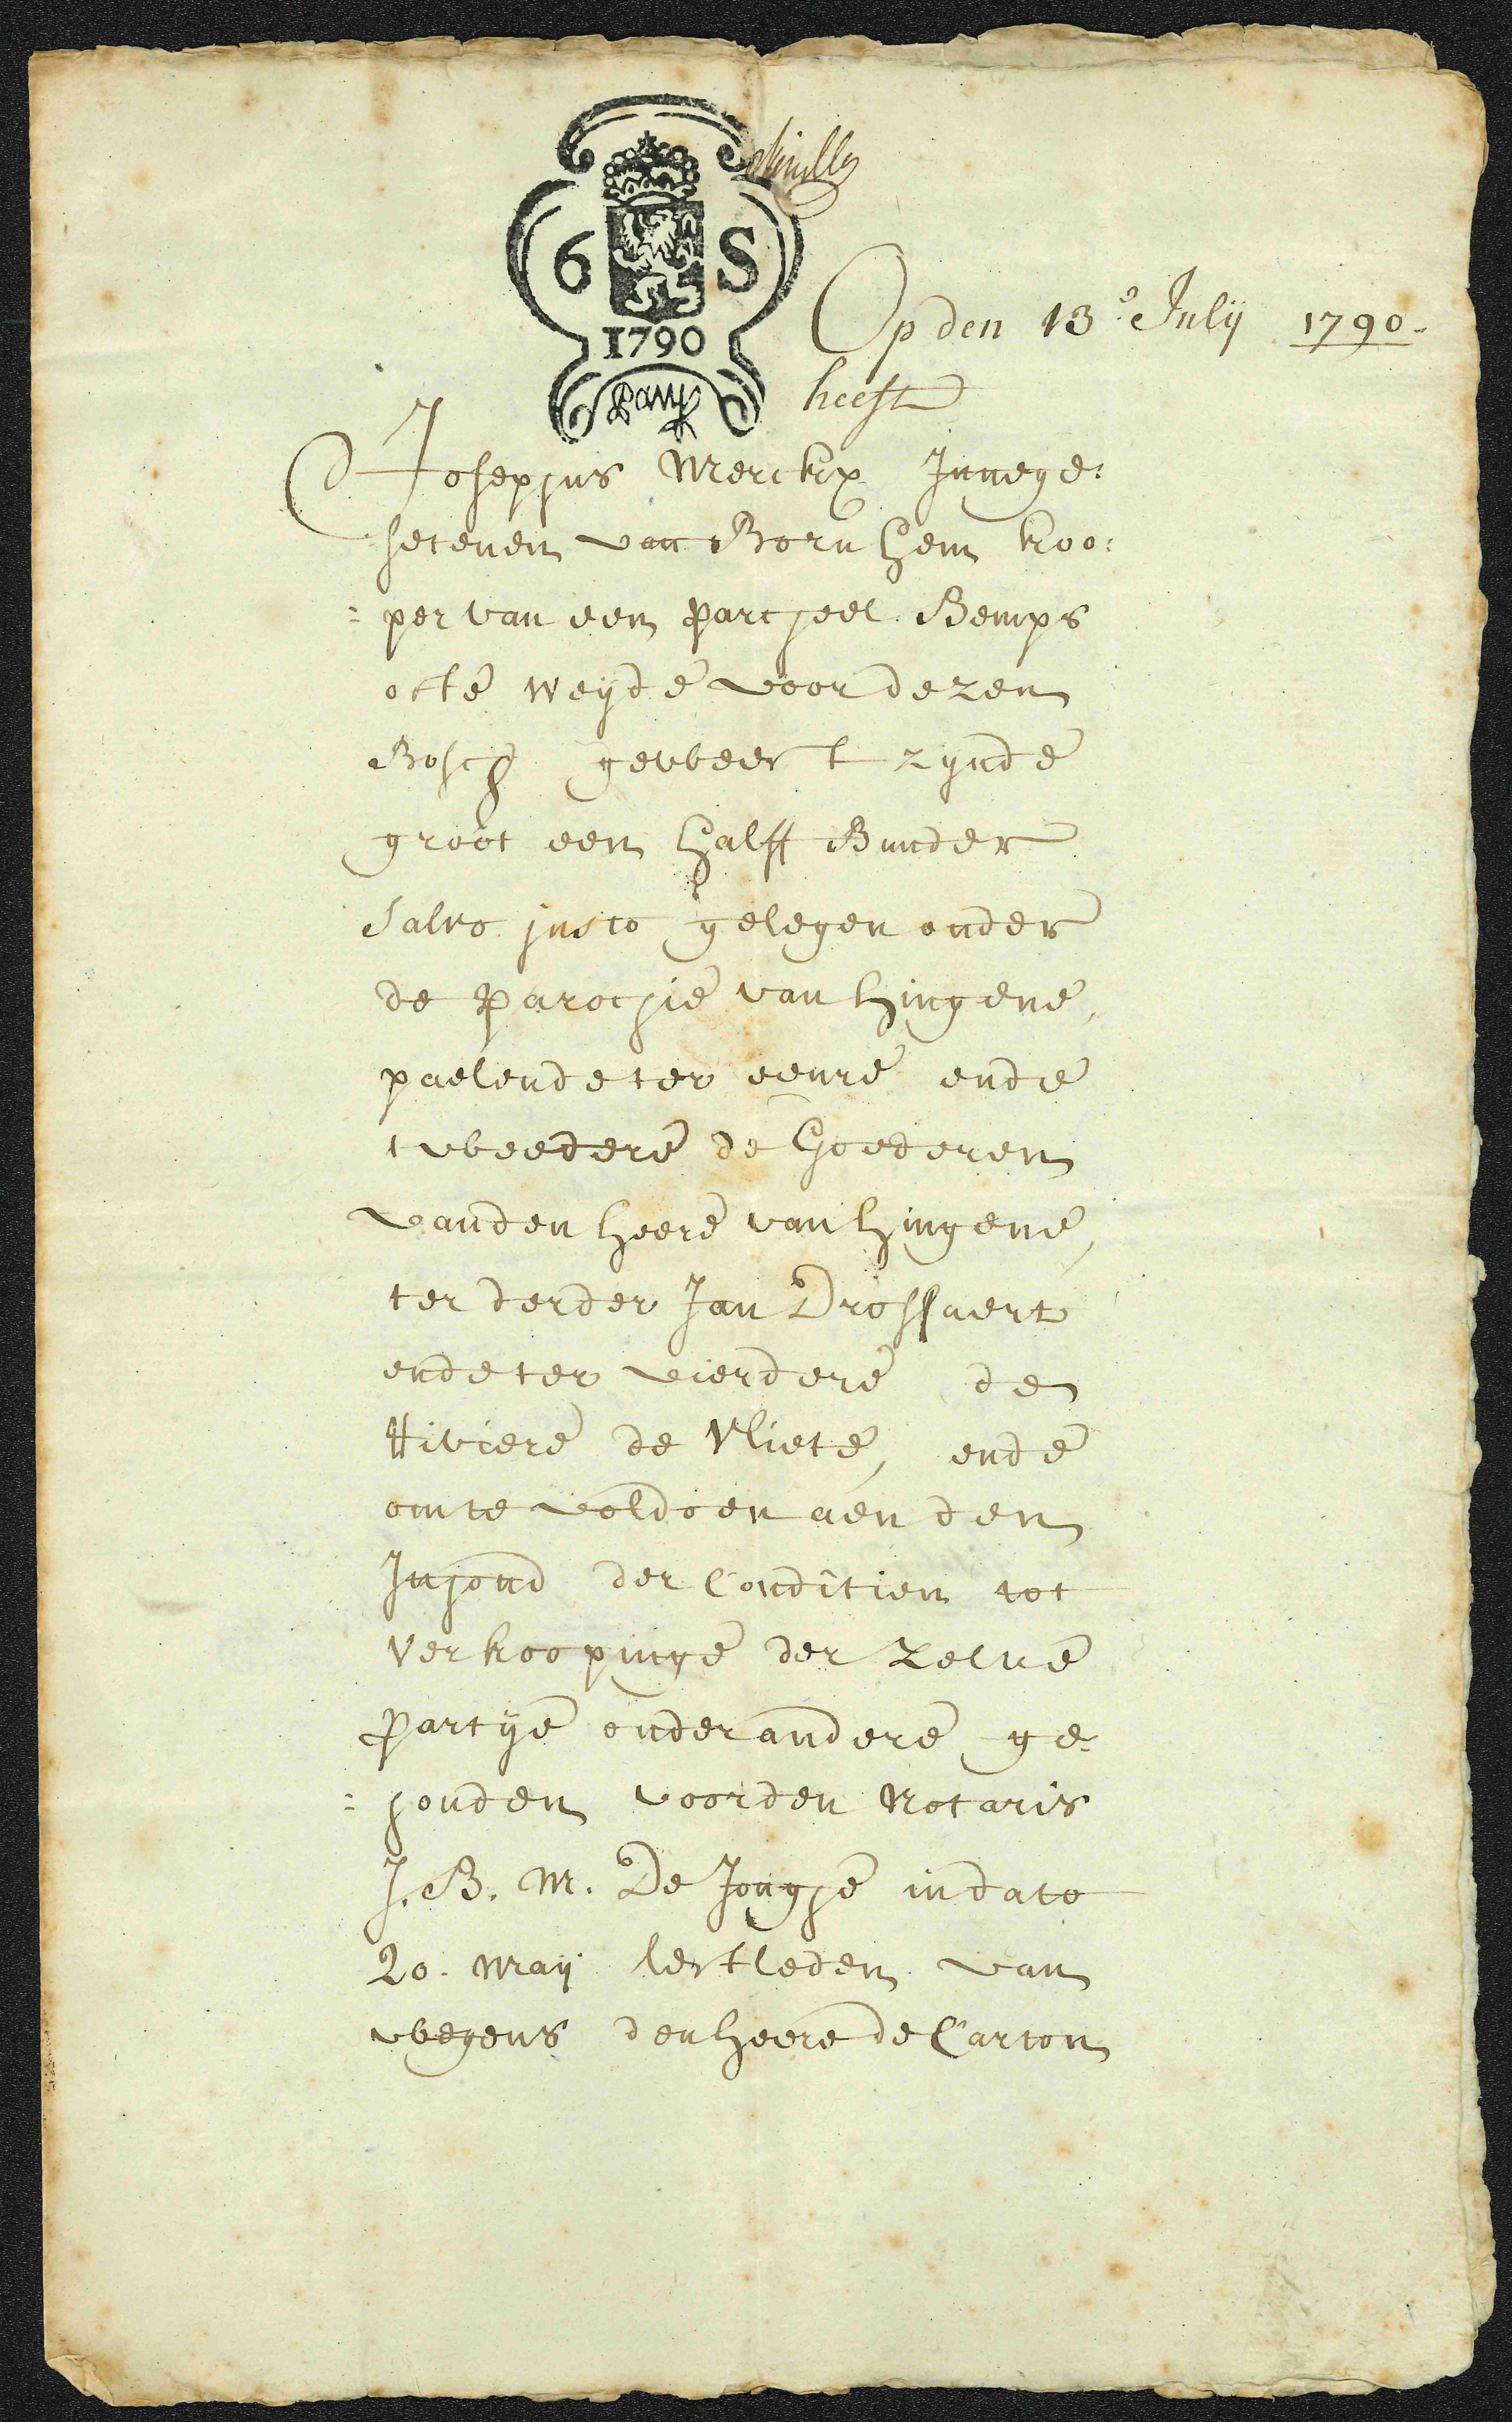 6 S
1790
Op den 13.e Julij 1790.
heeft
Josephus Merckx Innege:
setenen van Bornhem koo:
:per van een parcheel Bemps
ofte weyde voor dezen
Bosch geweest zynde
groot een halff Bunder
salvo justo gelegen onder
de parochie van hingene,
paelende ter eenre ende
tweedere de Goederen
vanden heere van hingene,
ter derder Jan Drossaert
ende ter vierdere de
Riviere de Vliete, ende
om te voldoen aen den
Inhoud der Conditien tot
verkoopinge der zelve
partye onder andere ge:
:houden voor den Notaris
J. B. M. De Jonghe in dato
20. Maij lestleden van
wegens den heere de Carton